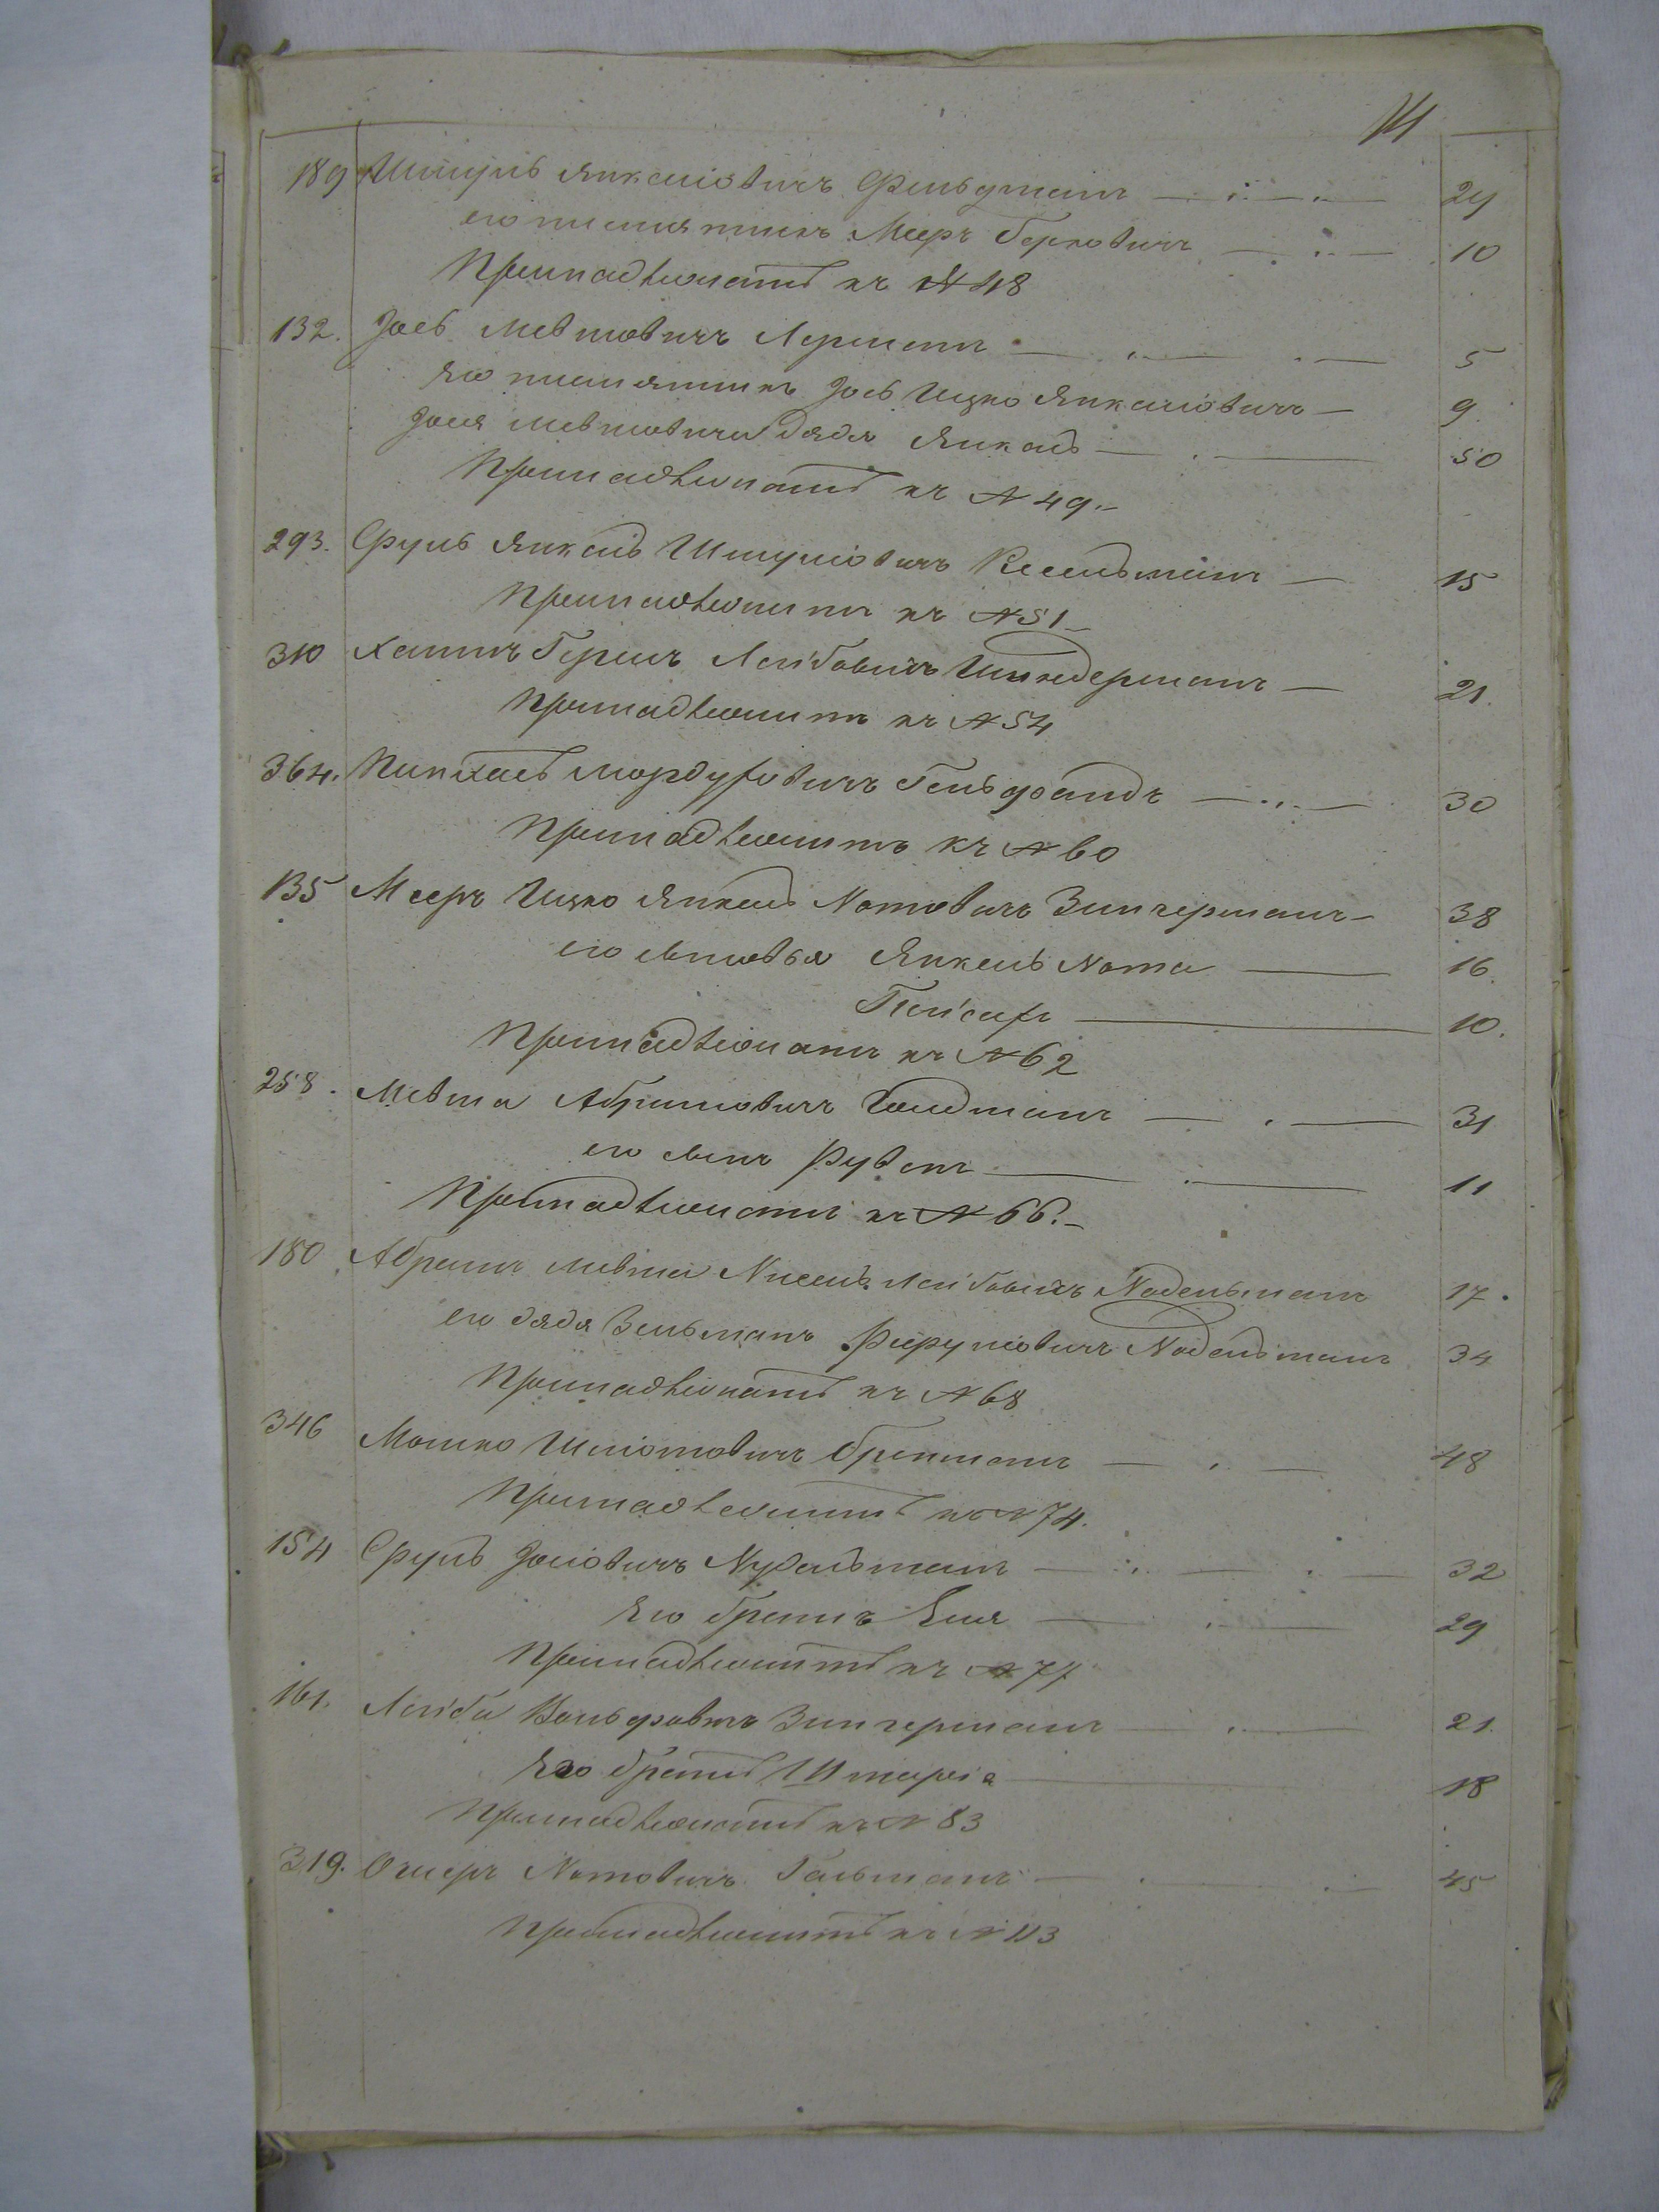 189 Шмуль Янкелiовичъ Фельдманъ 29
его племянникъ Мееръ Берковичъ 10
Принадлежатъ къ № 48
132. Iось Мевшовичъ Лерманъ 5
Его племянникъ Iось Ицко Янкелiовичъ 9
Iося Мевшовича дядя Янкель 50
Принадлежатъ къ № 49.
293. Сруль Янкель Шмулiовичъ Кесельманъ 15
Принадлежитъ къ № 51
310 Хаимъ Гершъ Лейбовичъ 21.
Принадлежитъ къ № 54
364. Пинхасъ Мордуховичъ Гельфандъ 30
Принадлежитъ къ № 60
135 Мееръ Ицко Янкель Нотовичъ Зингерманъ 38
его сыновья Янкель Нота 16.
Пейсахъ 10.
Принадлежатъ къ № 62
258. Мевша Абрамовичъ Гольдманъ 31
его сынъ Рувенъ 11
Принадлежатъ къ № 66.
180 Абрамъ Мевша Нисель Лейбовичъ Надельманъ 17.
его дядя Зельманъ Надельманъ 34
Принадлежатъ къ № 68
346 Мошко Шлiомовичъ 48
Принадлежитъ къ № 74.
154 Сруль Iослiовичъ Нудельманъ 32
Его братъ Еля 29
Принадлежитъ къ № 77
161. Лейба Вольфовичъ Зингерманъ 21.
Его братъ Шмарiа 18
Принадлежатъ къ № 83
319. Ошеръ Нотовичъ Гальманъ 45
Принадлежитъ къ № 113